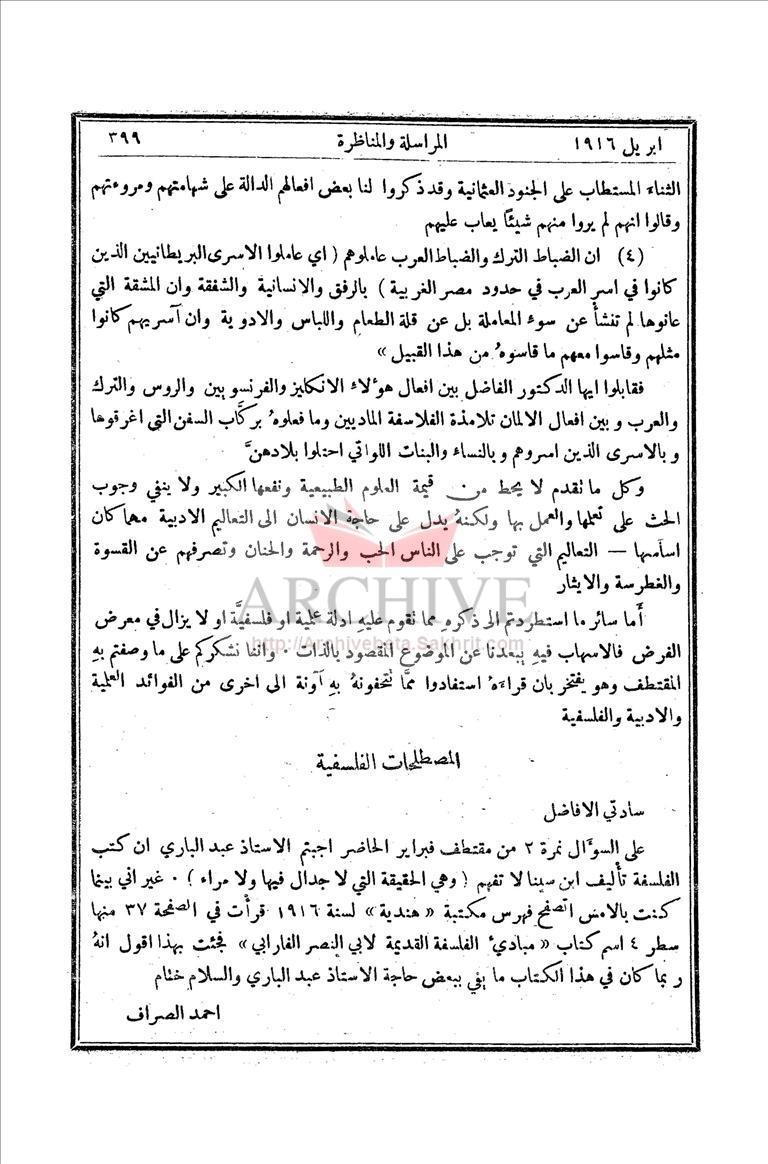 ابريل ١٩١٦ المراسلة والمناظرة ٣٩٩
الثناء المستطاب على الجنود العثمانية وقد ذكروا لنا بعض افعالهم الدالة على شهامتهم ومروءتهم
وقالوا انهم لم يروا منهم شيئًا يعاب عليهم
(٤) ان الضباط الترك والضباط العرب عاملوهم (اي عاملوا الاسرى البريطانيين الذين
كانوا في اسر العرب في حدود مصر الغربية) بالرفق والانسانية والشفقة وان المشقة التي
عانوها لم تنشأ عن سوء المعاملة بل عن قلة الطعام واللباس والادوية وان آسريهم كانوا
مثلهم وقاسوا معهم ما قاسوهُ من هذا القبيل»
فقابلوا ايها الدكتور الفاضل بين افعال هؤلاء الانكليز والفرنسويين والروس والترك
والعرب وبين افعال الالمان تلامذة الفلاسفة الماديين وما فعلوهُ بركَّاب السفن التي اغرقوها
وبالاسرى الذين اسروهم وبالنساء والبنات اللواتي احتلوا بلادهنَّ
وكل ما تقدم لا يحط من قيمة العلوم الطبيعية ونفعها الكبير ولا ينفي وجوب
الحث على تعلمها والعمل بها ولكنهُ يدل على حاجة الانسان الى التعاليم الادبية مهما كان
اساسها — التعاليم التي توجب على الناس الحب والرحمة والحنان وتصرفهم عن القسوة
والغطرسة والايثار
أما سائر ما استطردتم الى ذكره مما تقوم عليهِ ادلة علمية او فلسفيَّة او لا يزال في معرض
الفرض فالاسهاب فيهِ يبعدنا عن الموضوع المقصود بالذات ٠ واننا نشكركم على ما وصفتم بهِ
المقتطف وهو يفتخر بان قراءهُ استفادوا ممَّا تتحفونهُ بهِ آونة الى اخرى من الفوائد العلمية
والادبية والفلسفية
المصطلحات الفلسفية
سادتي الافاضل
على السؤال نمرة ٢ من مقتطف فبراير الحاضر اجبتم الاستاذ عبد الباري ان كتب
الفلسفة تأليف ابن سينا لا تفهم (وهي الحقيقة التي لا جدال فيها ولا مراء) ٠ غير اني بينما
كنت بالامس اتصفح فهرس مكتبة «هندية» لسنة ١٩١٦ قرأت في الصفحة ٣٧ منها
سطر ٤ اسم كتاب «مبادئ الفلسفة القديمة لابي النصر الفارابي» فجئت بهذا اقول انهُ
ربما كان في هذا الكتاب ما يفي ببعض حاجة الاستاذ عبد الباري والسلام ختام
احمد الصراف
ARCHIVE
http://Archivebeta.Sakhrit.com